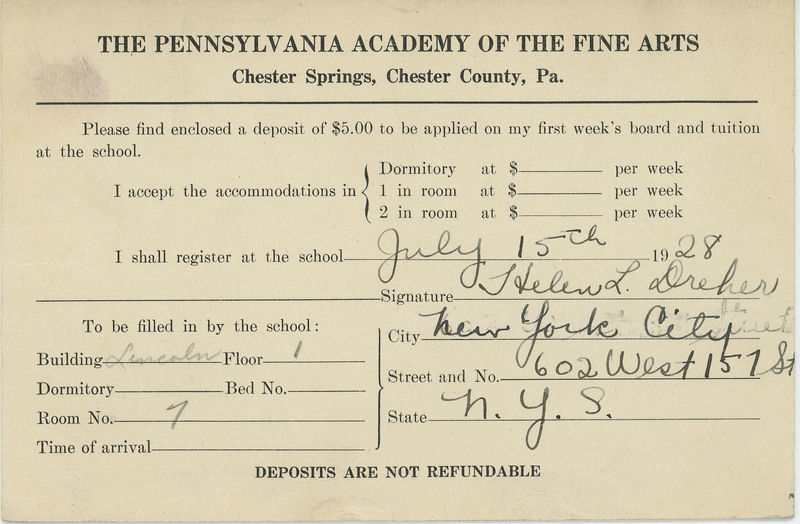 THE PENNSYLVANIA ACADEMY OF THE FINE ARTS
Chester Springs, Chester County, Pa.
Please find enclosed a deposit of $5.00 to be applied on my first week's board and tuition
at the school.
I accept the accommodations in
Dormitory at $ per week
1 in room at $ per week
2 in room at $ per week
I shall register at the school July 15th 1928
Signature Helen L. Dreher
To be filled in by the school:
Building Lincoln Floor 1
Dormitory Bed No.
Room No. 7
Time of arrival
City New York City
Street and No. 602 West 157 St
State N. Y. S.
DEPOSITS ARE NOT REFUNDABLE